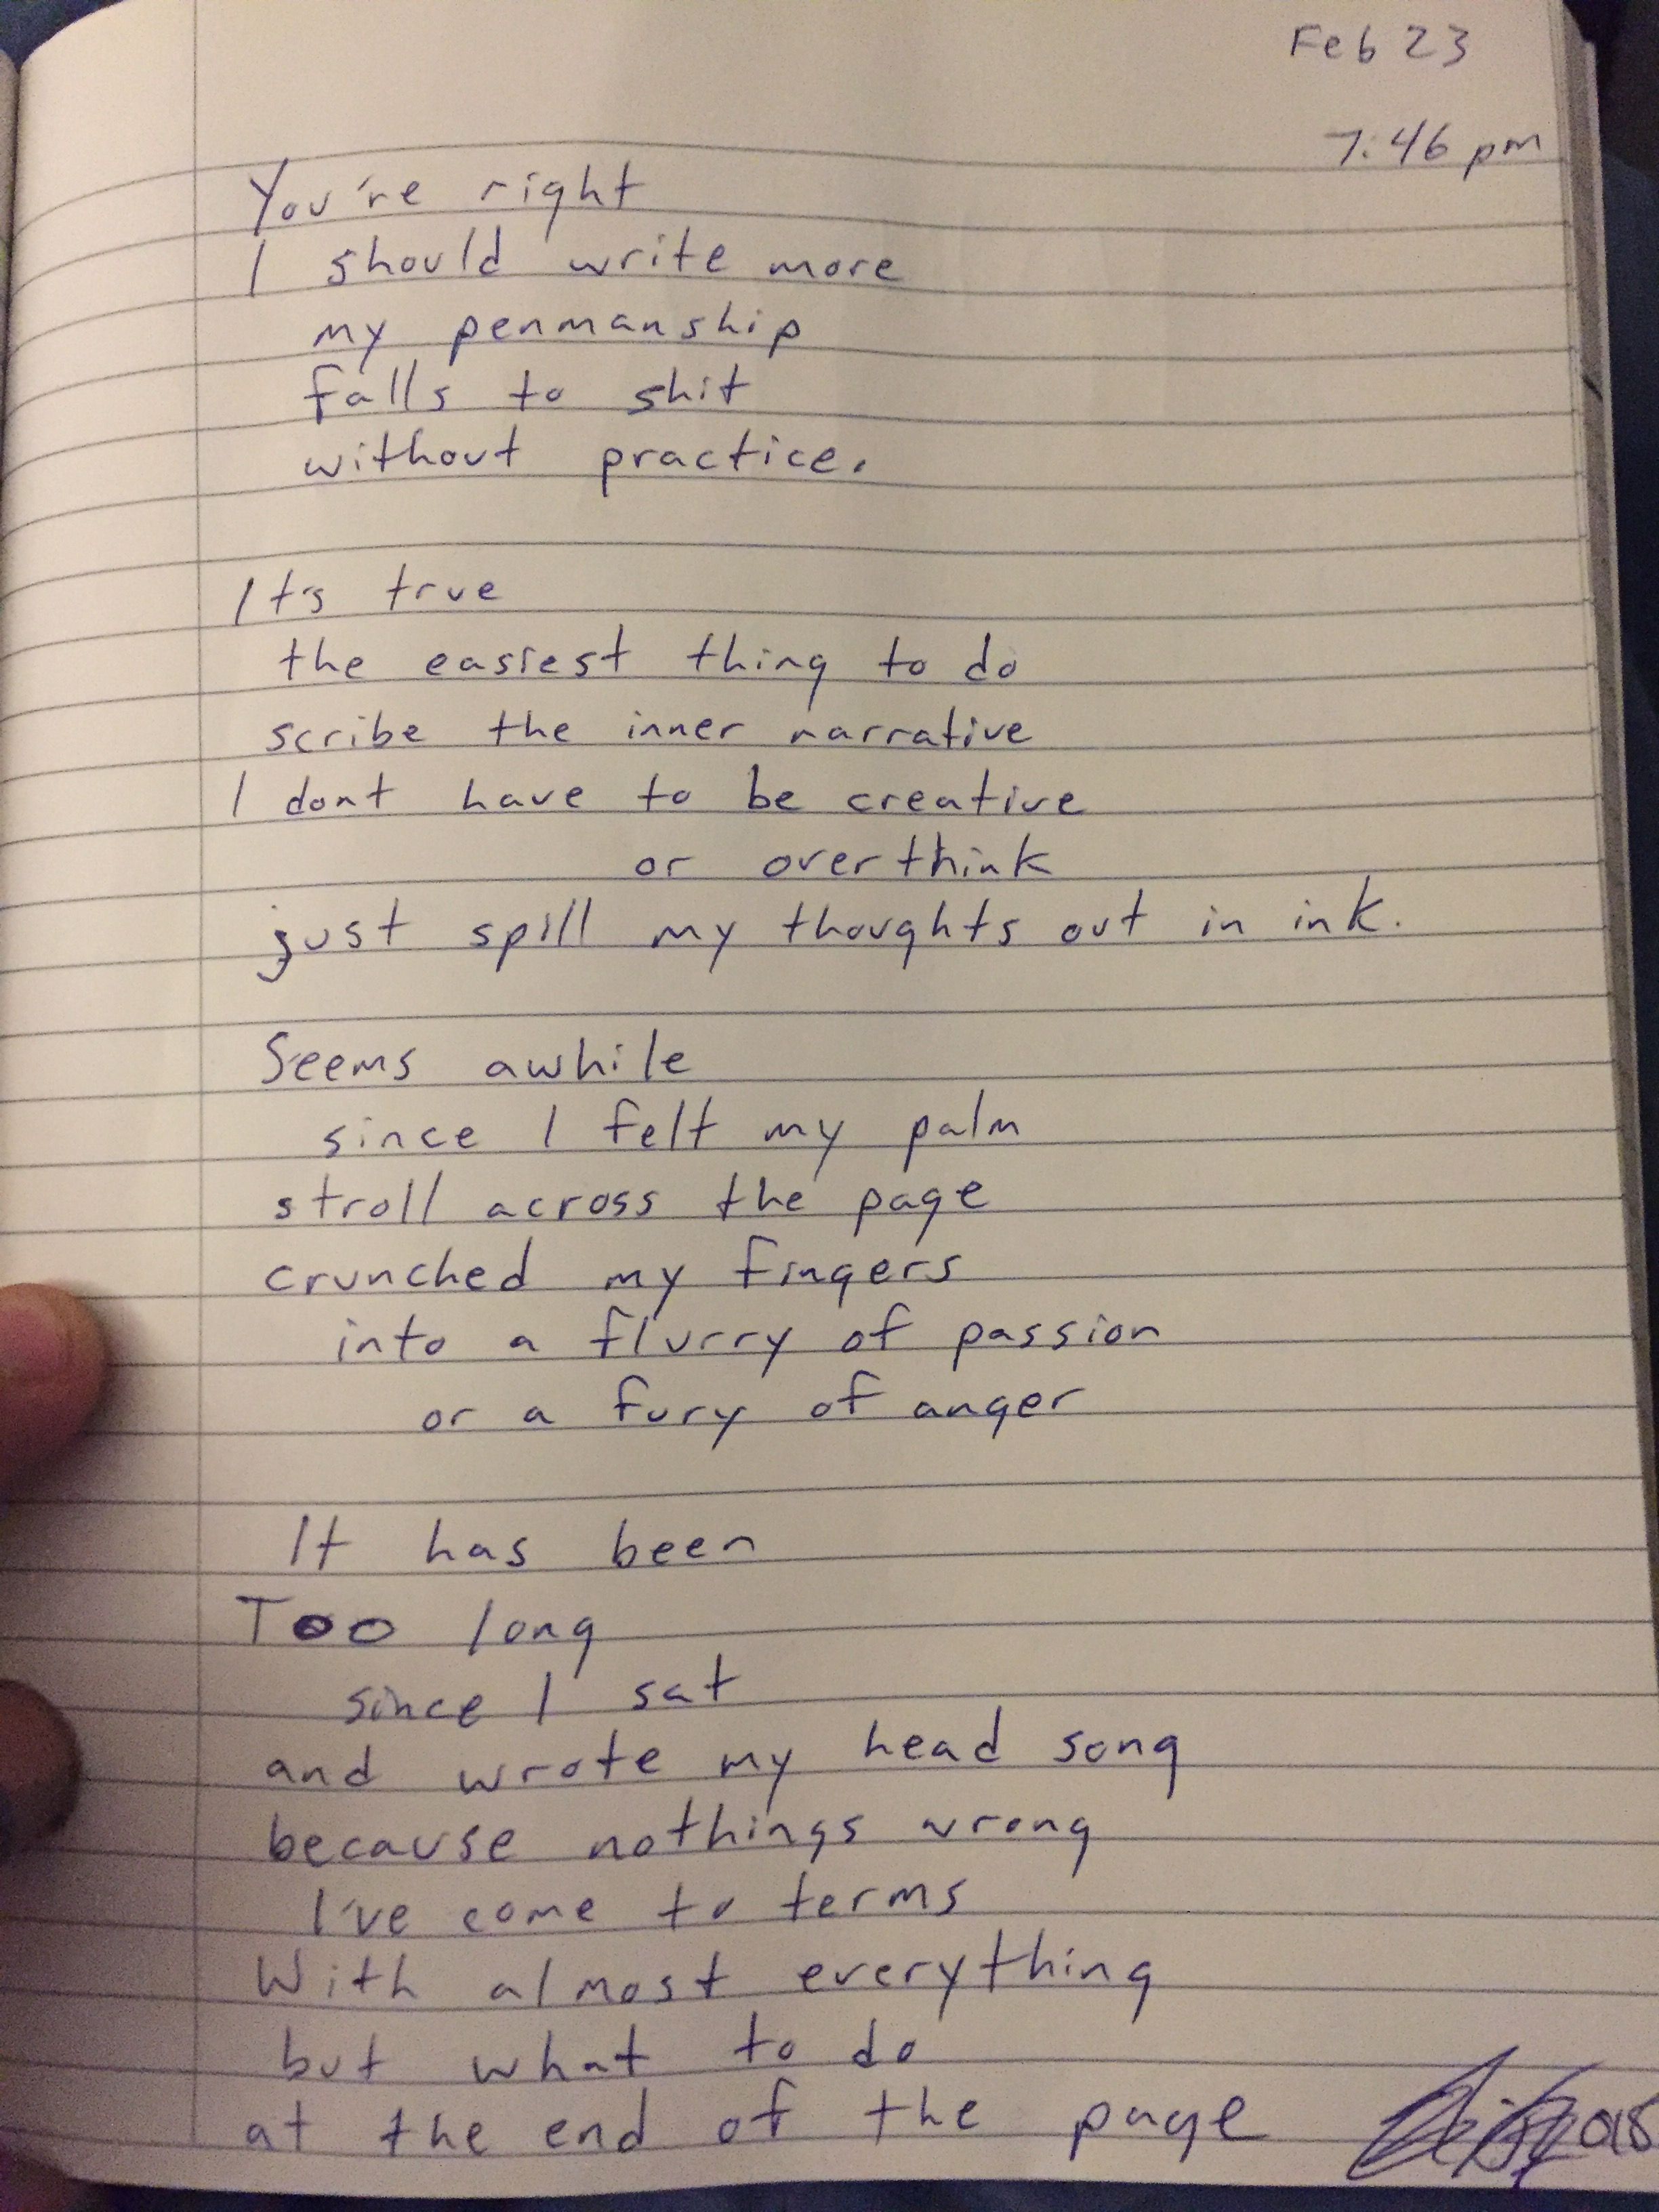 Feb 23
7:46 pm
You're right
I should write more
my penmanship
falls to shit
without practice.
Its true
the easiest thing to do
scribe the inner narrative
I dont have to be creative
or overthink
just spill my thoughts out in ink.
Seems awhile
since I felt my palm
stroll across the page
crunched my fingers
into a flurry of passion
or a fury of anger
It has been
Too long
since I sat
and wrote my head song
because nothings wrong
I've come to terms
With almost everything
but what to do
at the end of the page